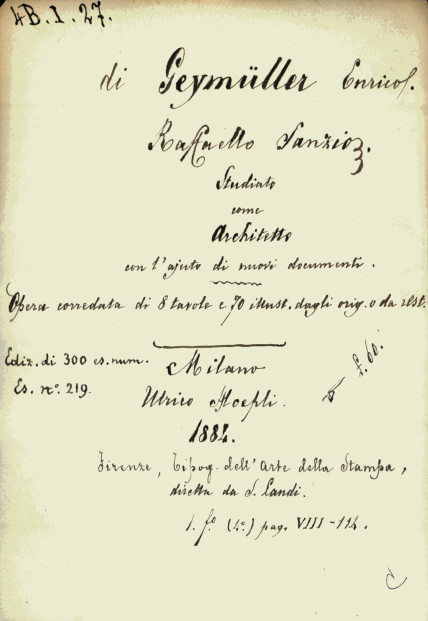 4B.I.27.
di Geymüller Enrico.
Raffaello Sanzio.
Studiato
come
Architetto
con l'ajuto di nuovi documenti.
Opera corredata di 8 tavole e 70 illust. dagli orig. o da rest.
Ediz. di 300 es. num.
Es. nº. 219.
£. 60.
Milano
Ulrico Hoepli.
1884.
Firenze, Tipog. dell'Arte della Stampa,
diretta da S. Landi.
1. fº. (4º.) pag. VIII-114.
C